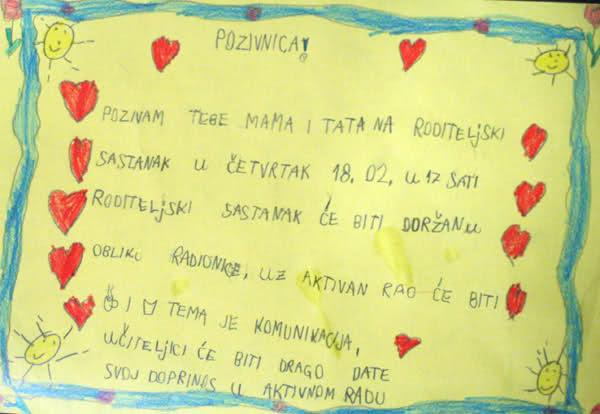 POZIVNICA!
POZIVAM TEBE MAMA I TATA NA RODITELJSKI
SASTANAK U ČETVRTAK 18. 02. U 17 SATI
RODITELJSKI SASTANAK ĆE BITI DORŽAN U
OBLIKU RADIONICE, UZ AKTIVAN RAD ĆE BITI
I TEMA JE KOMUNIKACIJA,
UČITELJICI ĆE BITI DRAGO DATE
SVOJ DOPRINOS U AKTIVNOM RADU